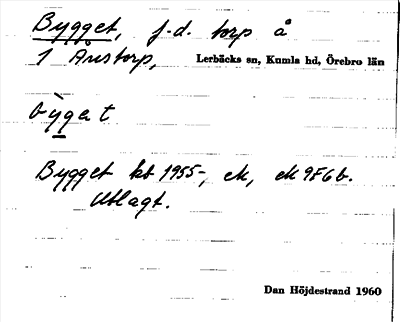 Bygget, f.d. torp å
1 Ånstorp, Lerbäcks sn, Kumla hd, Örebro län
bỳget
Bygget kb 1955-, ek, ek 9F6b.
Utlagt.
Dan Höjdestrand 1960